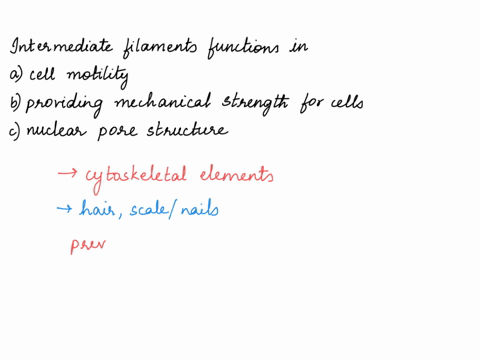 Intermediate filaments functions in
a) cell motility
b) providing mechanical strength for cells
c) nuclear pore structure
→ cytoskeletal elements
→ hair, scale/nails
prev